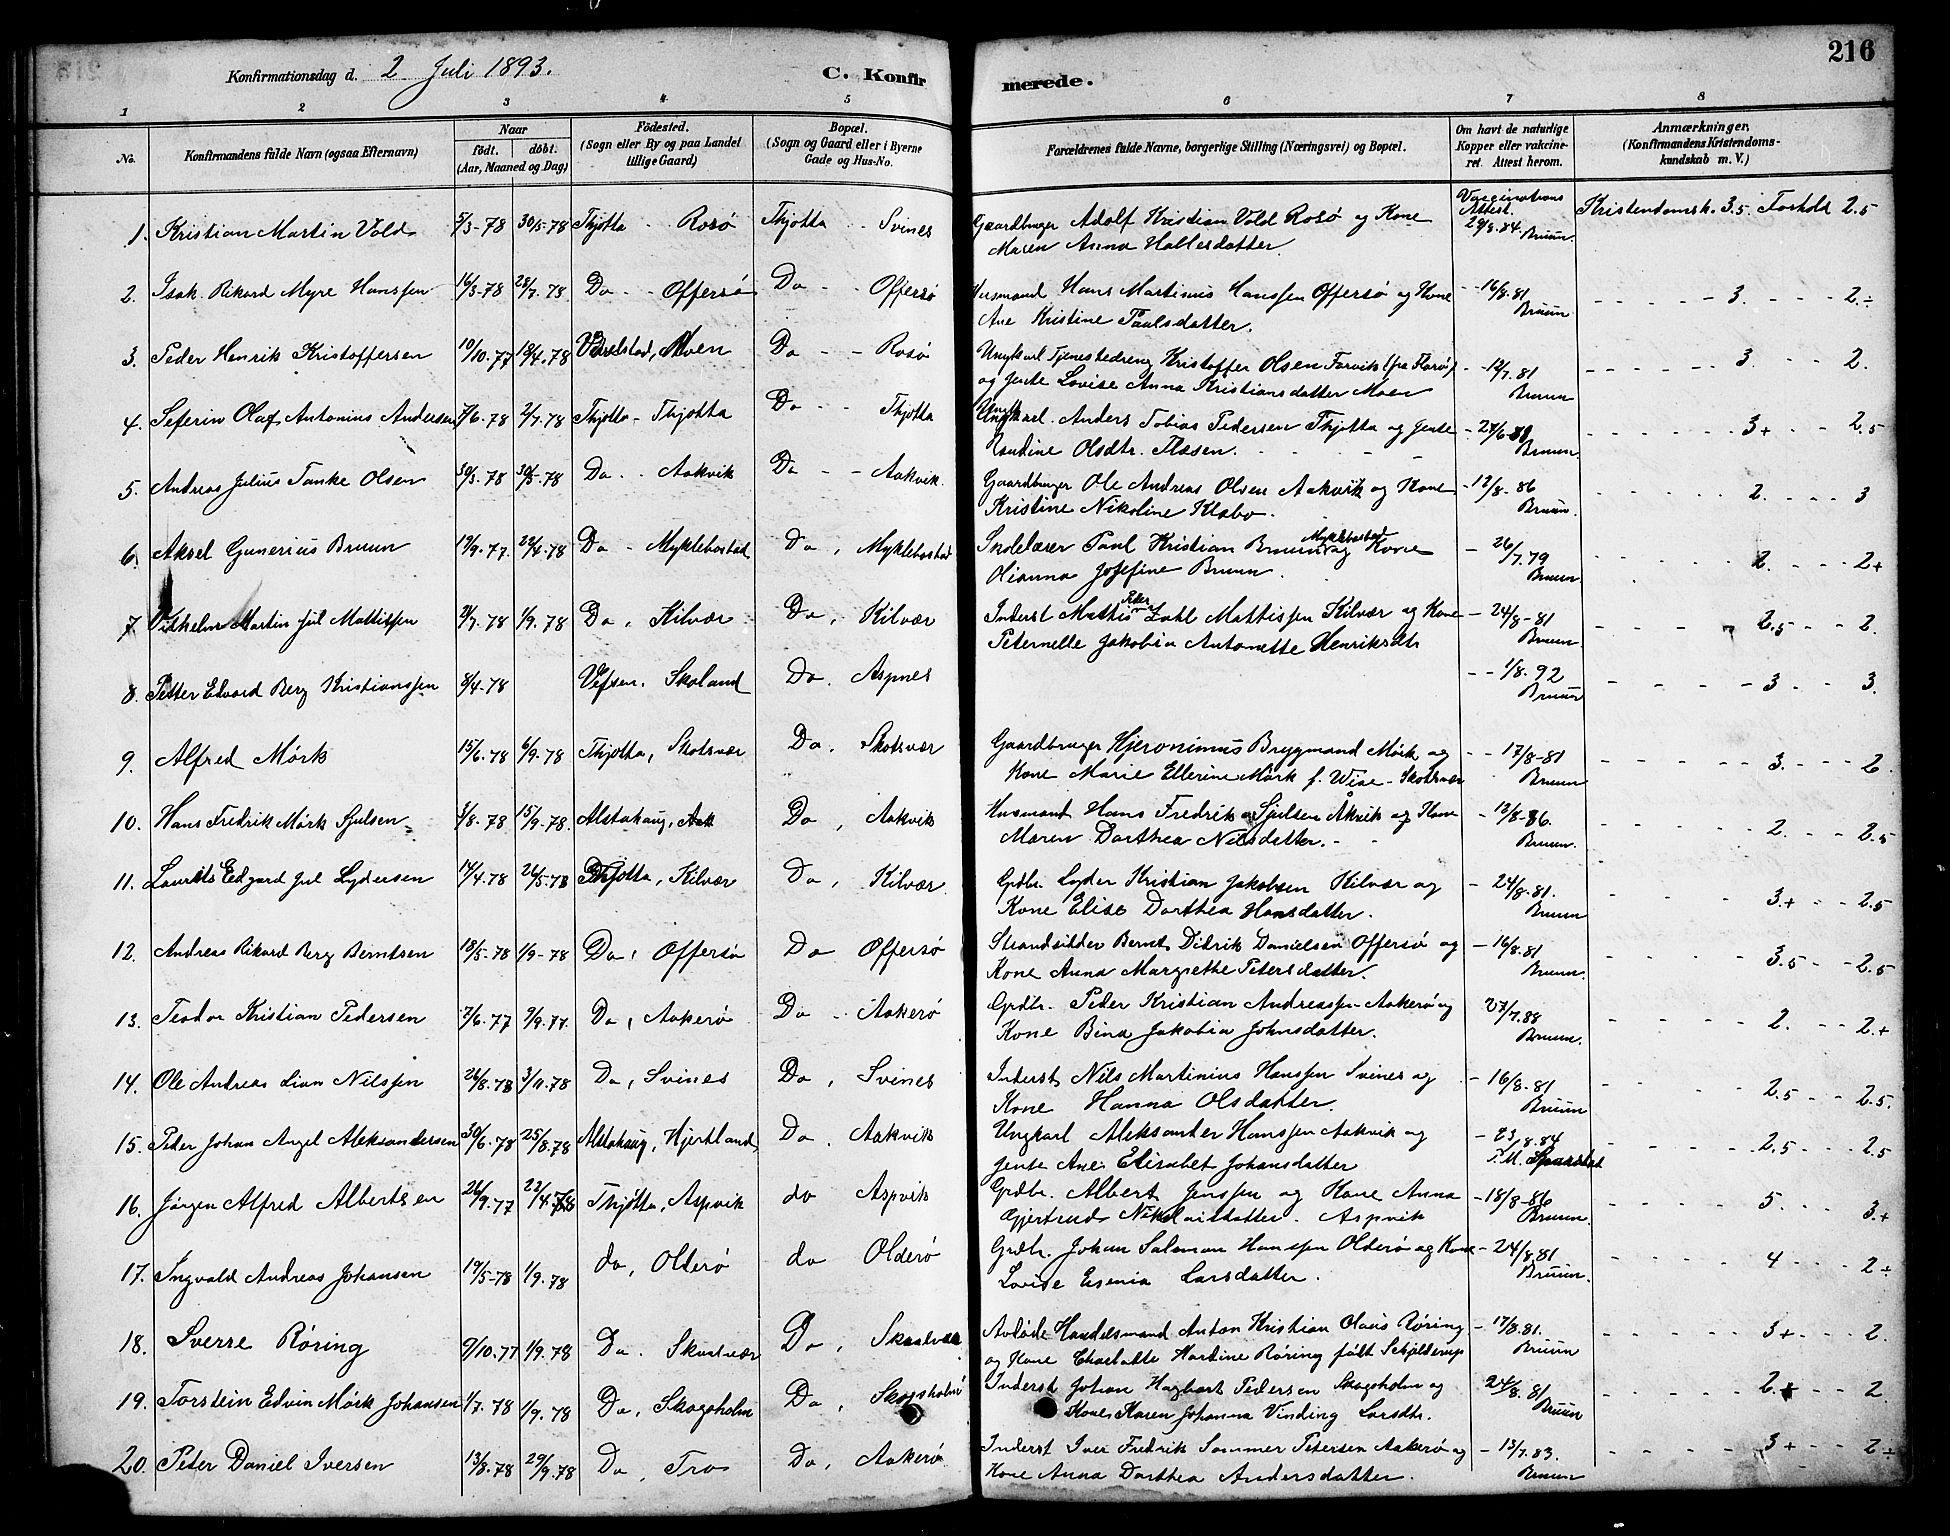 216
Konfirmationsdag d. 2 Juli 1893.
C. Konfirmerede.
1 2 3 4 5 6 7 8
No.
Konfirmandens fulde Navn (ogsaa Efternavn)
Naar
födt. döbt.
(Aar, Maaned og Dag)
Födested.
(Sogn eller By og paa Landet tillige Gaard)
Bopæl.
(Sogn og Gaard eller i Byerne Gade og Hus-No.
Forældrenes fulde Navne, borgerlige Stilling (Næringsvei) og Bopæl.
Om havt de naturlige Kopper eller vakcineret. Attest herom.
Anmærkninger.
(Konfirmandens Kristendomskundskab m. V.)
1. Kristian Martin Vold 5/3-78 30/5-78 Thjøtta - - Rosö Thjotta - - Svines Gaardbruger Adolf Kristian Vold Rosö og Kone Vaccinations Attest. 29/8.84. Bruun. Kristendomsk. 3.5. Forhold 2.5
Maren Anna Hallesdatter.
2. Isak Rikard Myre Hanssen 16/3-78 28/7.78 Do - - Offersö Do - - Offersö Husmand Hans Martinus Hanssen Offersö og Kone - 16/8.81 Bruun - - - 3. - - - 2.÷
Ane Kristine Paulsdatter.
3. Peder Henrik Kristoffersen 10/10.77 19/4.78 Do - - Rosö Ungkarl Tjenestedreng Kristoffer Olsen Forvik (fra Florö) - 12/7.81 Bruun - - - 3. - - 2.
og Jente Lovise Anna Kristiansdatter Moen
4. Seferin Olaf Antonius Andersen 7/6.78 2/7.78 Thjøtta - Thjøtta Do - - Thjotta Ungkarl. Anders Tobias Pedersen Thjøtta og Jente - 27/6-81 Bruun. - - - 3+ - - 2.5
Olsdtr.
5. Andreas Julius Tanke Olsen 30/3.78 30/5-78 Do - - Aakvik Do - - Aakvik. Gaardbruger Ole Andreas Olsen Aakvik og Kone - 12/8-86 Bruun. - - - 2. - - - 3
Kristine Nikoline Klæbo.
6. Aksel Gunerius Bruun 19/9.77. 22/4.78 Do - Myklebostad Do, Myklebostad Skolelærer Paul Kristian Bruun Myklebostad og Kone - 26/7.79 Bruun - - - 2. - - 2+
Olianna Josefine Bruun.
7. Vilhelm Martin Jul Mattissen 21/7.78 1/9.78 Do, Kilvær Do, Kilvær Inderst Mattis Peter Zahl Mattissen Kilvær og Kone - 24/8-81 Bruun - - - 2.5 - - - 2.
Peternelle Jakobia Antonette Henriksdtr
8. Petter Edvard Berg Kristianssen 8/4.78 Vefsen. Skoland Do. Aspnes - - 1/8.92 Bruun - - - 3. - - 3.
9. Alfred Mörk 15/6.78 6/9.78 Thjøtta, Skotsvær Do, Skotsvær Gaardbruger Hjeronimus Bryggmand Mörk og - - 17/8-81 Bruun - - - 3. - - - 2.
Kone Marie Ellerine Mörk f. Wise - Skotsvær
10. Hans Fredrik Mörk Sjulsen 3/8.78 15/9-78. Alstahaug, Aak Do, Aakvik Husmand Hans Fredrik Sjulsen Åkvik og Kone - 12/8-86. Bruun. - - - 2. - - 2.5
Maren Dorthea Nilsdatter. - -
11. Laurits Edgard Jul Lydersen 14/4.78 26/5.78 Thjotta, Kilvær Do, Kilvær Grdbr. Lyder Kristian Jakobsen Kilvær og - 24/8.81. Bruun - - - 3.+ - - 2.5
Kone Elise Dorthea Hansdatter.
12. Andreas Rikard Berg Berntsen 18/5-78 1/9-78 Do, Offersö Do Offersö Strandsidder Bernt Didrik Danielsen Offersö og - 16/8.81 Bruun. - - - 3.5 - - 2.5
Kone Anna Margrethe Petersdatter.
13. Teodor Kristian Pedersen 7/6.77 9/9.77. Do, Aakerö Do - Aakerö Grdbr. Peder Kristian Andreassen - Aakerö og 27/7.88 Bruun. - - - 2. - - - 2.+
Kone Bina Jakobia Johnsdatter.
14. Ole Andreas Lian Nilssen 26/8.78 3/11.78 Do, Svines Do, Svines Inderst Nils Martinius Hanssen Svines og - 16/8.81 Bruun - - - 2.5 - - - 2.5.
Kone Hanna Olsdatter.
15. Peder Johan Angel Aleksandersen 30/6.78 25/8.78 Alstahaug, Hjertland Do, Aakvik Ungkarl Aleksander Hanssen Aakvik og - 23/8.84 - - - 2.5 - - - 2.5
Jente Ane Elisabet Johansdatter
16. Jörgen Alfred Albertsen 26/9.77 22/4.78 Thjøtta, Aspvik do Aspvik Grdbr. Albert Jenssen og Kone Anna - 18/8-86 Bruun. - - - 5. - - - 3.+
Gjertrud Nikolaidatter. Aspvik
17. Ingvald Andreas Johansen 19/5-78 1/9.78 do, Olderö do Olderö Grdbr. Johan Salomon Hanssen Olderö og Kone - 24/8.81 Bruun. - - - 4 - - - 2÷
Lovise Esenia Larsdatter.
18. Sverre Röring 9/10.77 1/9.78 Do. Skaalvær Do, Skaalvær Avdöde Handelsmand Anton Kristian Olaus Röring - 17/8.81. Bruun - - - 3+ - - - 2.
og Kone Charlotte Martine Röring födt Schjelderup
19. Torstein Edvin Mörk Johansen 1/7.78 1/9.78 Do, Skogsholm Do, Skogsholm Inderst Johan Hagbart Pedersen Skogsholm og 24/8.81 Bruun - - - 2.+ - - - 2
Kone Karen Johanna Vinding Larsdtr.
20. Peter Daniel Iversen 13/8.78 29/9.78 Do, Tro Do, Aakerö Inderst Iver Fredrik Sommer Petersen Aakerö og - 13/7.83. Bruun - - - 3+ - - - 2÷
Kone Anna Dorthea Andersdatter.